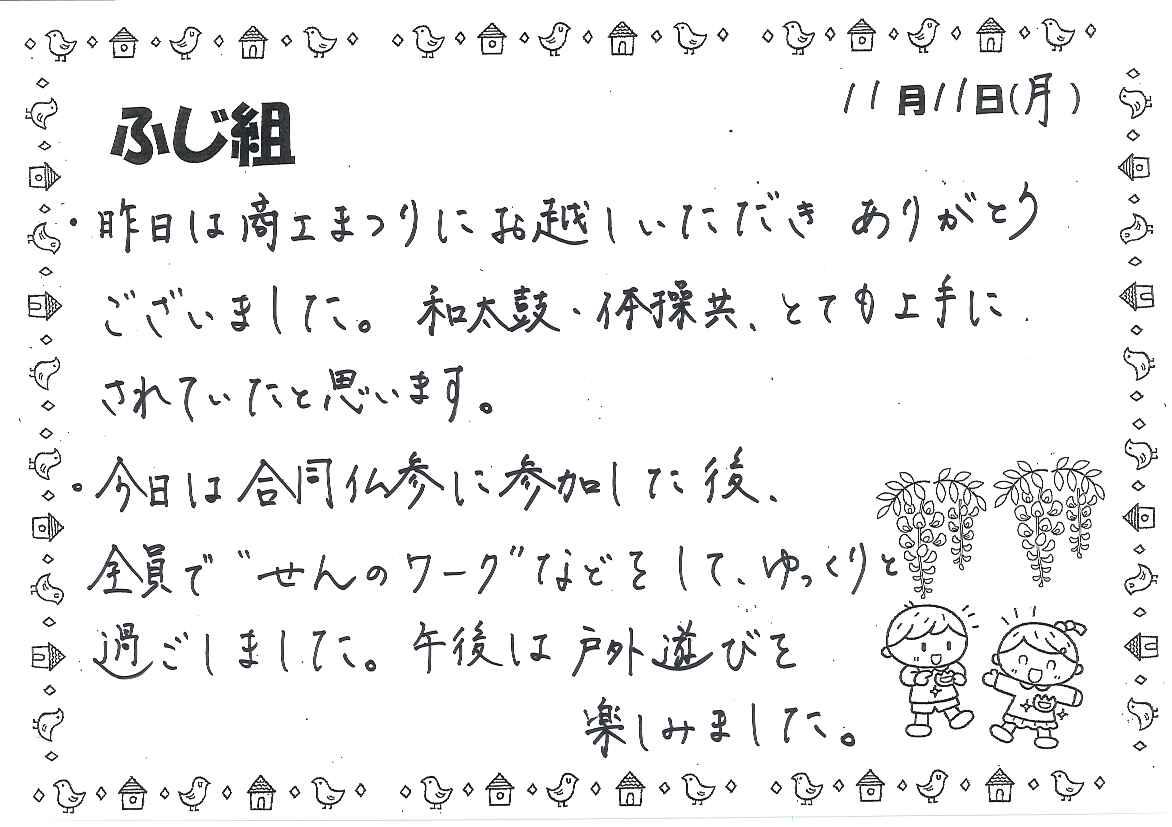 11月11日(月)
ふじ組
・昨日は商工まつりにお越しいただき ありがとう
ございました。 和太鼓・体操共、とても上手に
されていたと思います。
・今日は合同仏参に参加した後、
全員で"せんのワーク"などをして、ゆっくりと
過ごしました。午後は戸外遊びを
楽しみました。